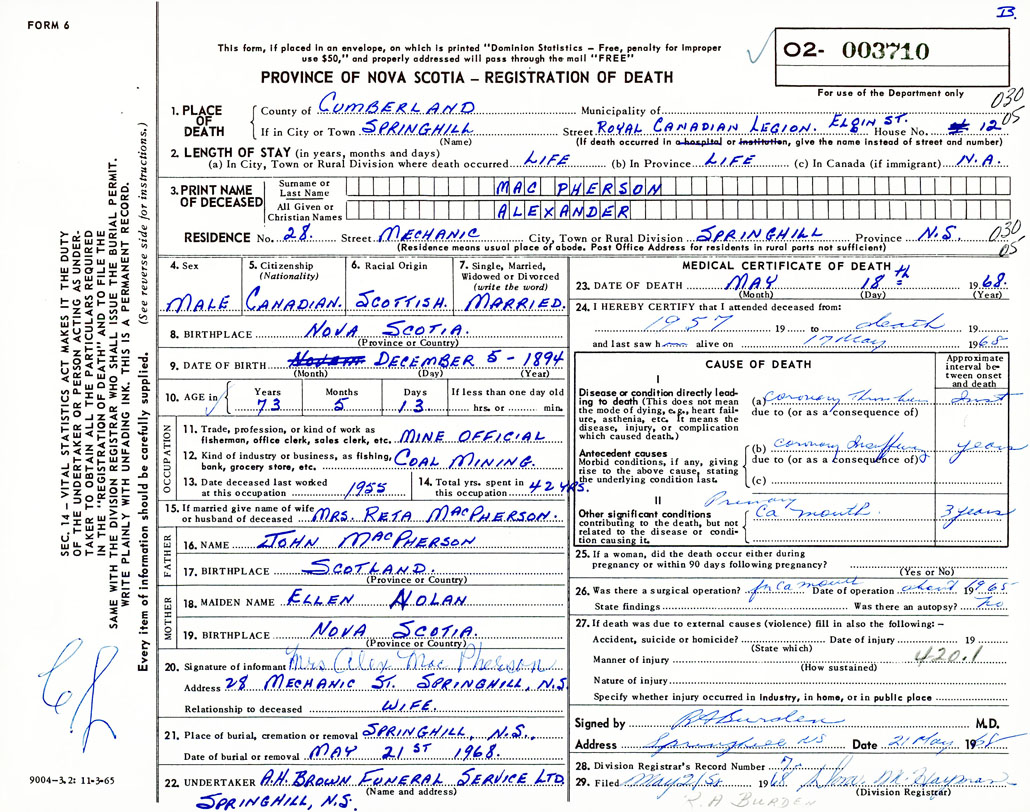 B.
FORM 6
This form, if placed in an envelope, on which is printed "Dominion Statistics – Free, penalty for improper
use $50," and properly addressed will pass through the mail "FREE"
02- 003710
For use of the Department only
PROVINCE OF NOVA SCOTIA – REGISTRATION OF DEATH
030
05
1. PLACE OF DEATH
County of CUMBERLAND Municipality of
If in City or Town SPRINGHILL Street ROYAL CANADIAN LEGION. ELGIN ST. House No. 12
(Name) (If death occurred in a hospital or institution, give the name instead of street and number)
2. LENGTH OF STAY (in years, months and days)
(a) In City, Town or Rural Division where death occurred LIFE (b) In Province LIFE (c) In Canada (if immigrant) N.A.
3. PRINT NAME OF DECEASED
Surname or Last Name MAC PHERSON
All Given or Christian Names ALEXANDER
RESIDENCE No. 28. Street MECHANIC City, Town or Rural Division SPRINGHILL Province N.S.
030
05
(Residence means usual place of abode. Post Office Address for residents in rural parts not sufficient)
4. Sex
MALE
5. Citizenship (Nationality)
CANADIAN.
6. Racial Origin
SCOTTISH.
7. Single, Married, Widowed or Divorced (write the word)
MARRIED.
8. BIRTHPLACE NOVA SCOTIA.
(Province or Country)
9. DATE OF BIRTH DECEMBER 5 - 1894
(Month) (Day) (Year)
10. AGE in Years 73 Months 5 Days 13 If less than one day old hrs. or min.
OCCUPATION
11. Trade, profession, or kind of work as fisherman, office clerk, sales clerk, etc. MINE OFFICIAL
12. Kind of industry or business, as fishing, bank, grocery store, etc. COAL MINING.
13. Date deceased last worked at this occupation 1955
14. Total yrs. spent in this occupation 42 YRS.
15. If married give name of wife or husband of deceased MRS. RETA MACPHERSON.
FATHER
16. NAME JOHN MACPHERSON
17. BIRTHPLACE SCOTLAND.
(Province or Country)
MOTHER
18. MAIDEN NAME ELLEN NOLAN
19. BIRTHPLACE NOVA SCOTIA.
(Province or Country)
20. Signature of informant Mrs. Alex MacPherson
Address 28 MECHANIC ST. SPRINGHILL, N.S.
Relationship to deceased WIFE.
21. Place of burial, cremation or removal SPRINGHILL, N.S.
Date of burial or removal MAY 21ST 1968.
22. UNDERTAKER A.H. BROWN FUNERAL SERVICE LTD.
(Name and address)
SPRINGHILL, N.S.
MEDICAL CERTIFICATE OF DEATH
23. DATE OF DEATH MAY 18th 1968.
(Month) (Day) (Year)
24. I HEREBY CERTIFY that I attended deceased from:
1957 19 to death 19
and last saw h alive on 17 May 1968
CAUSE OF DEATH
Approximate interval between onset and death
I
Disease or condition directly leading to death (This does not mean the mode of dying, e.g., heart failure, asthenia, etc. It means the disease, injury, or complication which caused death.)
(a) coronary
due to (or as a consequence of)
Antecedent causes
Morbid conditions, if any, giving rise to the above cause, stating the underlying condition last.
(b) coronary years
due to (or as a consequence of)
(c)
II
Other significant conditions contributing to the death, but not related to the disease or condition causing it.
Primary
Ca mouth. 3 years
25. If a woman, did the death occur either during pregnancy or within 90 days following pregnancy?
(Yes or No)
26. Was there a surgical operation? for Ca mouth Date of operation about 1965
State findings Was there an autopsy? No
27. If death was due to external causes (violence) fill in also the following: –
Accident, suicide or homicide? Date of injury 19
(State which)
420.1
Manner of injury
(How sustained)
Nature of injury
Specify whether injury occurred in Industry, in home, or in public place
Signed by RA Burden M.D.
Address Springhill NS Date 21 May 1968
28. Division Registrar's Record Number
29. Filed May 21st 1968
(Division Registrar)
R. A BURDEN
SEC. 14 – VITAL STATISTICS ACT MAKES IT THE DUTY
OF THE UNDERTAKER OR PERSON ACTING AS UNDER-
TAKER TO OBTAIN ALL THE PARTICULARS REQUIRED
IN THE "REGISTRATION OF DEATH" AND TO FILE THE
SAME WITH THE DIVISION REGISTRAR WHO SHALL ISSUE THE BURIAL PERMIT.
WRITE PLAINLY WITH UNFADING INK. THIS IS A PERMANENT RECORD.
Every item of information should be carefully supplied. (See reverse side for instructions.)
9004–3.2: 11-3-65